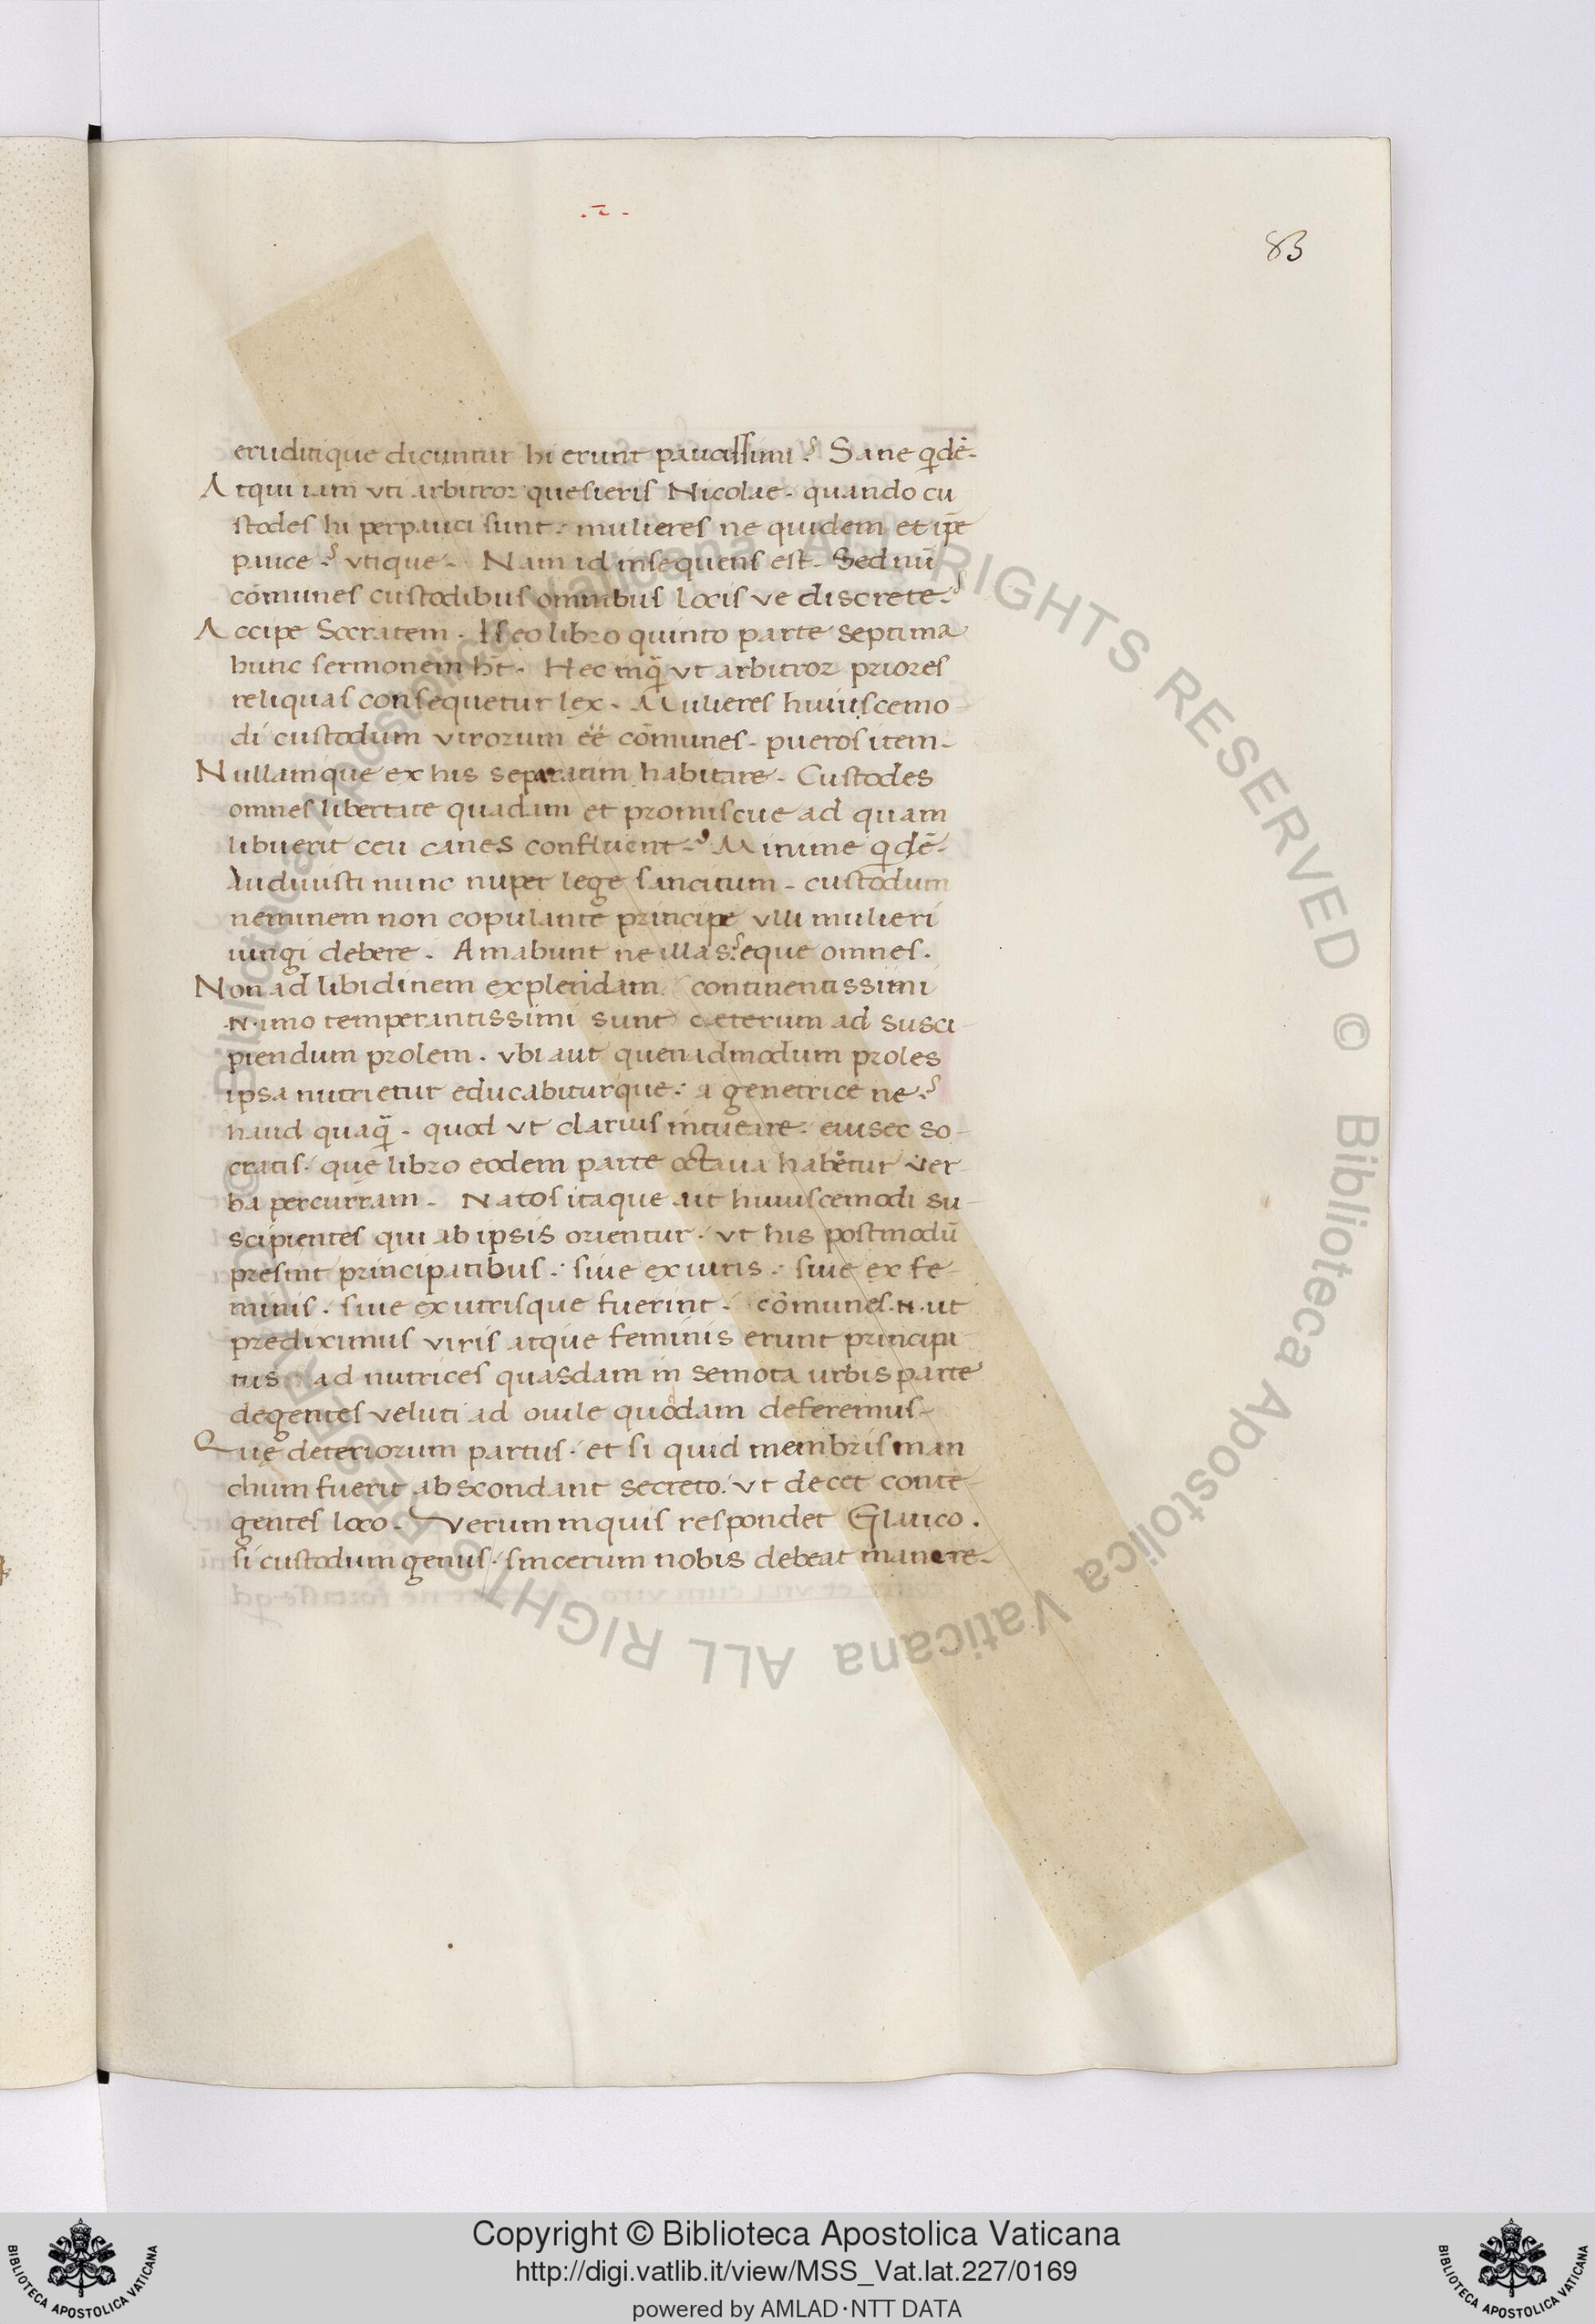 83
eruditique dicuntur hi erunt paucissimi? Sane qdē.
Atqui iam vti arbitror quesieris Nicolae. quando cu
stodes hi perpauci sunt: mulieres ne quidem et ip̄e
pauce? vtique. Nam id insequens est. Sed nū
cōmunes custodibus omnibus locis ve discrete?
Accipe Socratem. Is eo libro quinto parte septima
hunc sermonem ht̄. Hec inq̄ vt arbitror priores
reliquas consequetur lex. Mulieres huiuscemo
di custodum virorum ēē cōmunes. pueros item.
Nullamque ex his separatim habitare. Custodes
omnes libertate quadam et promiscue ad quam
libuerit ceu canes confluent? Minime qdē.
Audiuisti nunc nuper lege sancitum. custodum
neminem non copulante principe vlli mulieri
iungi debere. Amabunt ne illas? eque omnes.
Non ad libidinem explendam. continentissimi
.n. imo temperantissimi sunt ceterum ad susci
piendum prolem. vbi aut quenadmodum proles
ipsa nutrietur educabiturque: a genetrice ne?
haud quaq̄. quod vt clarius intueare. eiusec so
cratis. que libro eodem parte octaua habetur ver
ba percurram. Natos itaque ut huiuscemodi su
scipientes qui ab ipsis orientur. vt his postmodū
presint principatibus: siue ex uiris: siue ex fe
minis. siue ex utrisque fuerint. cōmunes .n. ut
prediximus viris atque feminis erunt principa
tus ad nutrices quasdam in semota urbis parte
degentes veluti ad ouile quodam deferemus.
Que deteriorum partus. et si quid membris man
chum fuerit abscondant secreto. vt decet conte
gentes loco. Verum inquis respondet Glauco.
si custodum genus. sincerum nobis debeat manere.
© Biblioteca Apostolica Vaticana ALL RIGHTS RESERVED © Biblioteca Apostolica Vaticana ALL RIGHTS RESERVED
Copyright © Biblioteca Apostolica Vaticana
http://digi.vatlib.it/view/MSS_Vat.lat.227/0169
powered by AMLAD·NTT DATA
BIBLIOTECA APOSTOLICA VATICANA
BIBLIOTECA APOSTOLICA VATICANA